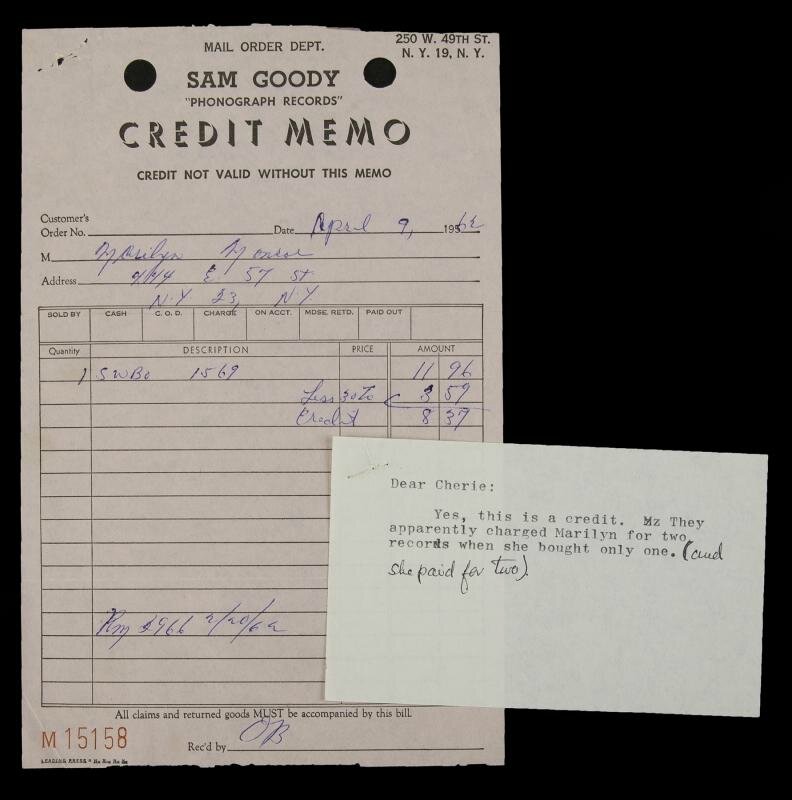 MAIL ORDER DEPT.
250 W. 49TH ST.
N. Y. 19, N. Y.
SAM GOODY
"PHONOGRAPH RECORDS"
CREDIT MEMO
CREDIT NOT VALID WITHOUT THIS MEMO
Customer's
Order No. Date April 9, 1962
M Marilyn Monroe
Address 444 E. 57 St
N.Y 23, N.Y.
SOLD BY CASH C. O. D. CHARGE ON ACCT. MDSE. RETD. PAID OUT
Quantity DESCRIPTION PRICE AMOUNT
1 SWBO 1569 11 96
Less 30% 3 59
Credit 8 37
Rm 2966 2/20/62
All claims and returned goods MUST be accompanied by this bill.
M 15158
Rec'd by
LEADING PRESS
Dear Cherie:
Yes, this is a credit. Mz They
apparently charged Marilyn for two
records when she bought only one. (and
she paid for two).